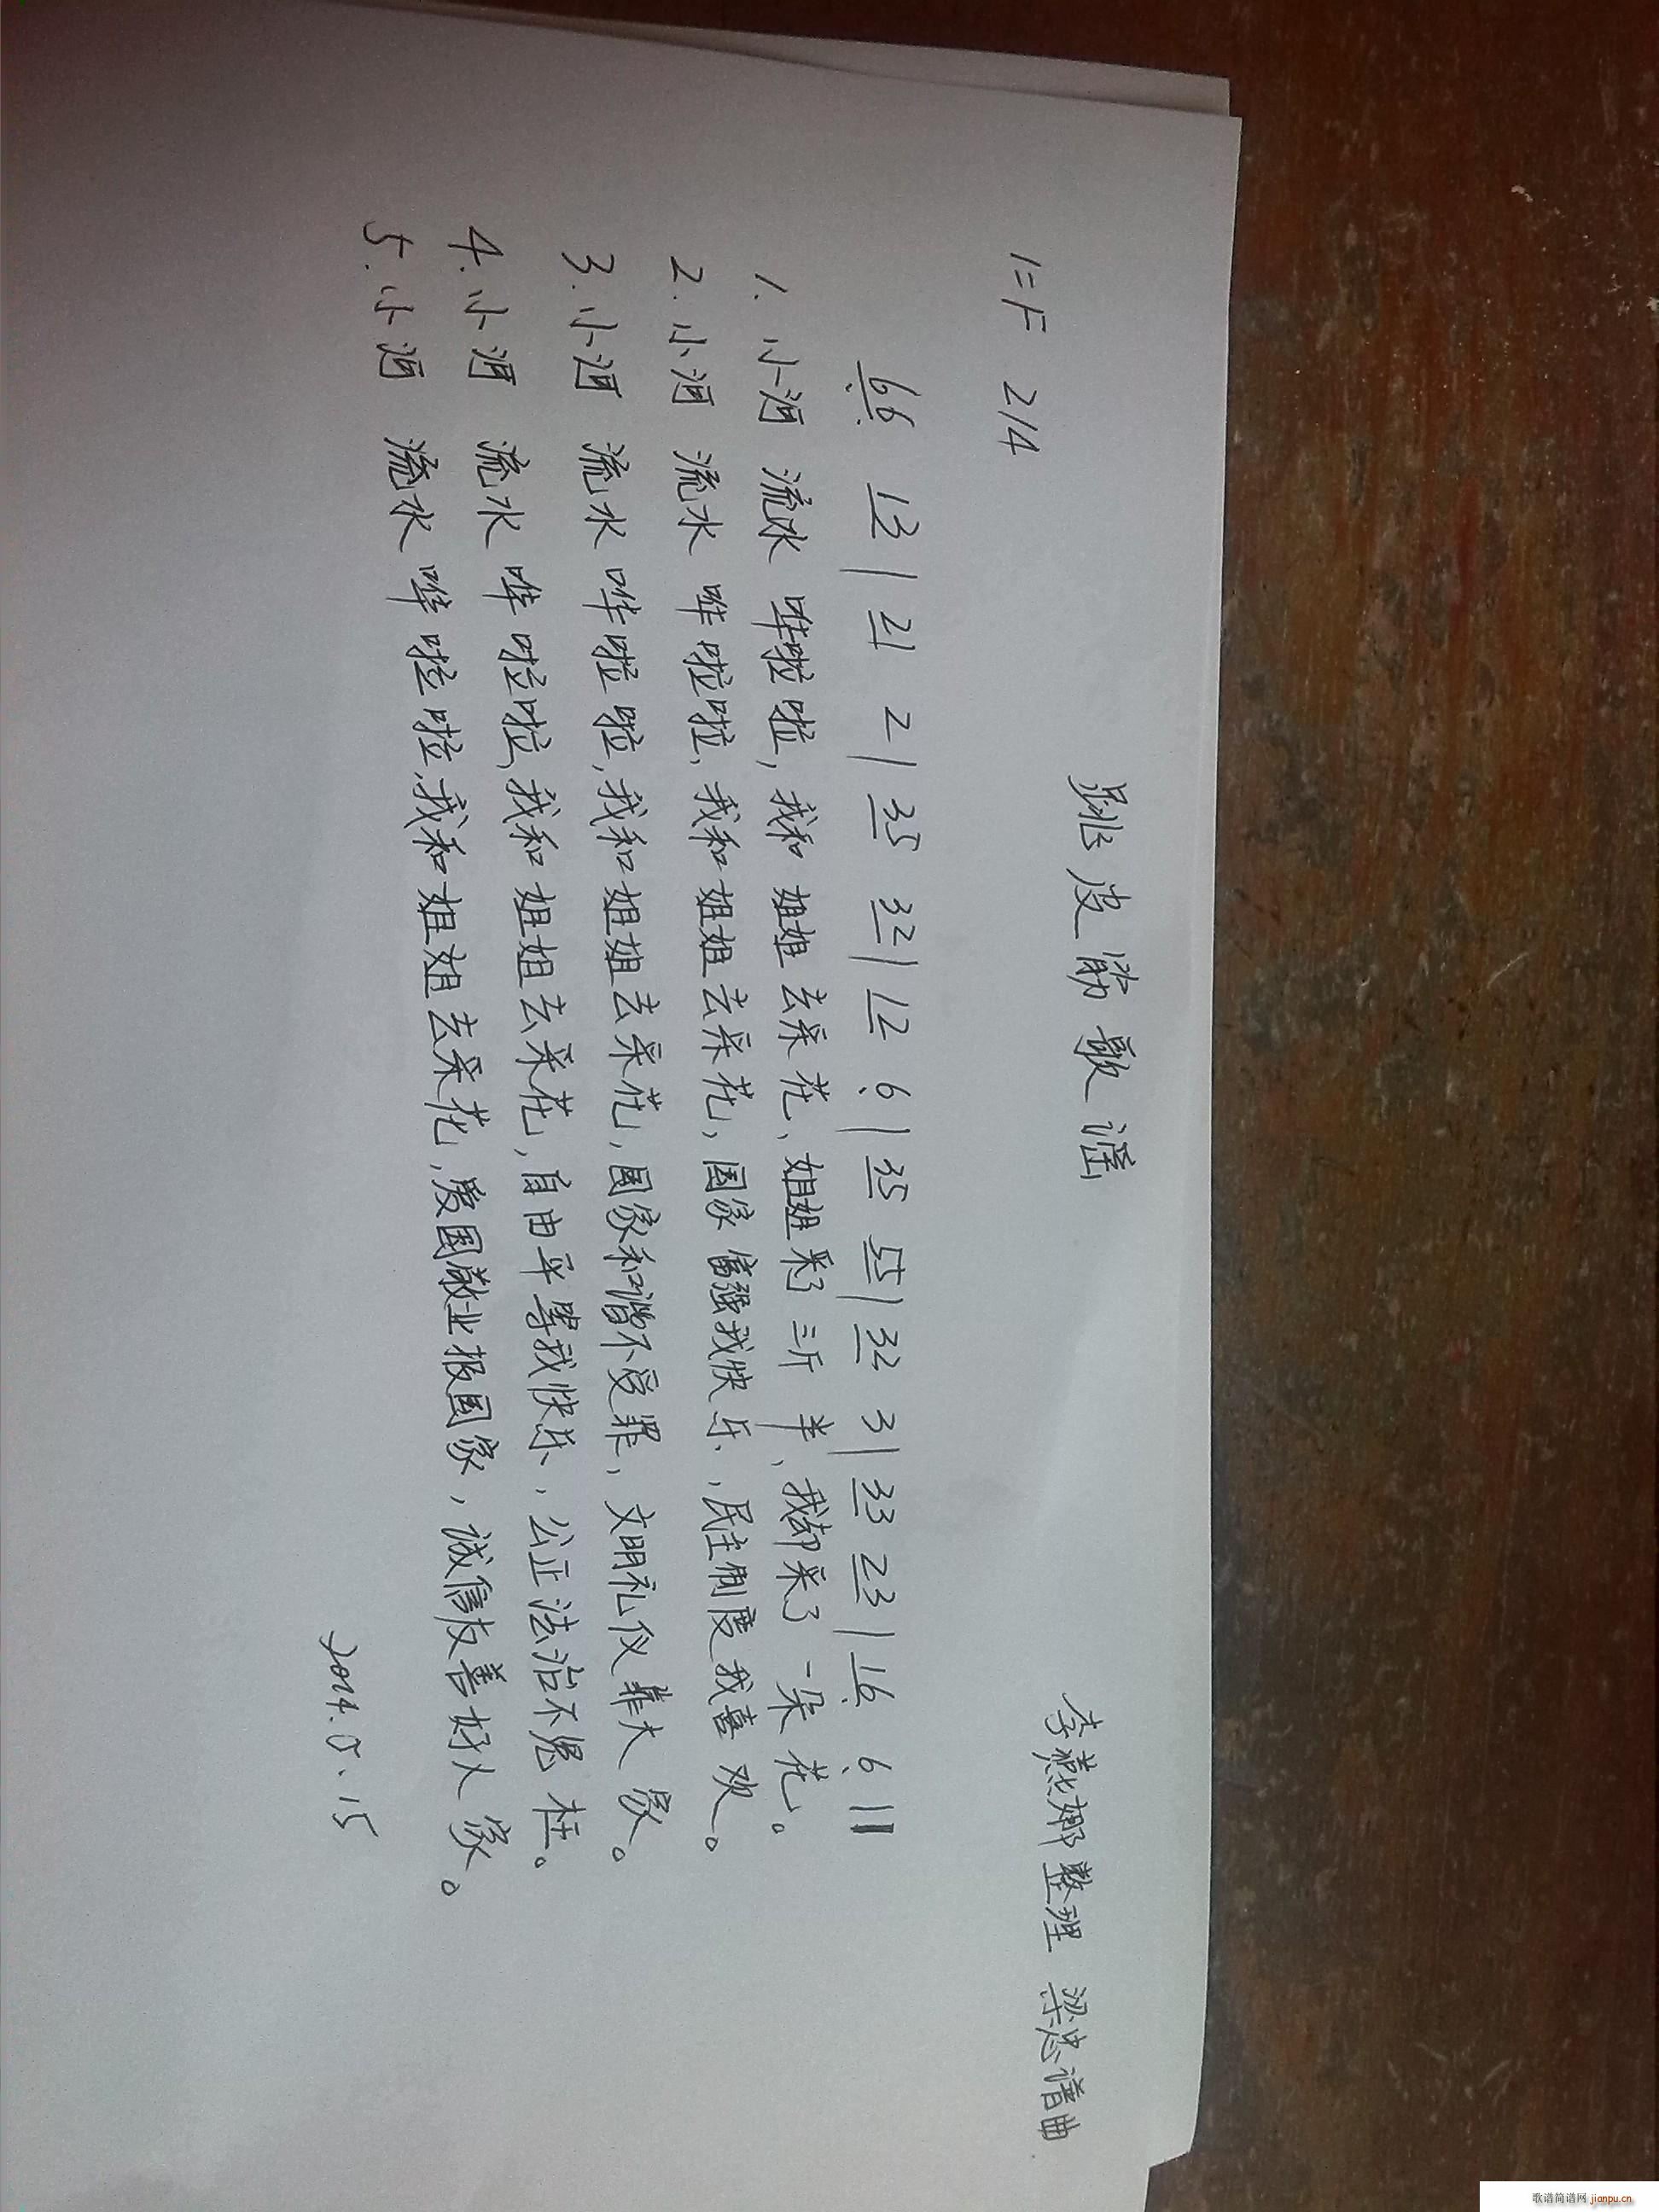 跳皮筋歌谣
李燕娜整理 梁忠谱曲
1=F 2/4
66 13 | 21 2 | 35 32 | 12 6 | 35 55 | 32 3 | 33 23 | 16 6 ‖
1. 小河 流水 哗啦啦,我和 姐姐 去采 花、姐姐采了 三斤 半、我却采了 一朵 花。
2. 小河 流水 哗啦啦、我和姐姐去采花,国家富强我快乐,民主制度我喜欢。
3. 小河 流水 哗啦啦,我和姐姐去采花,国家和谐不受罪,文明礼仪靠大家。
4. 小河 流水 哗啦啦,我和姐姐去采花,自由平等我快乐,公正法治不冤枉。
5. 小河 流水 哗啦啦,我和姐姐去采花,爱国敬业报国家,诚信友善好人家。
歌谱简谱网 jianpu.cn